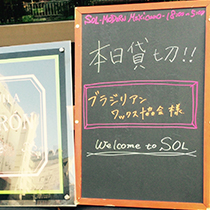 SOL-MODERN MEXICANO-18:00-5:00
本日貸切!!
ブラジリアン
ワックス協会 様
Welcome to SOL
RON